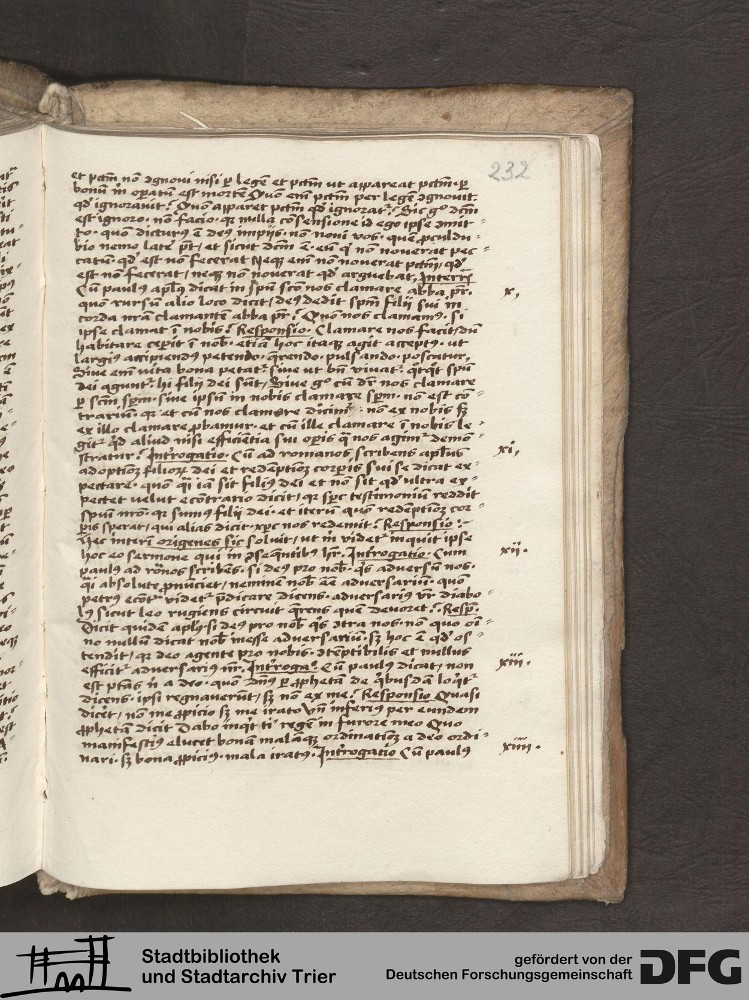 232
et pctm̄ nō ꝯgnovi nisi ꝑ legē et pctm̄ ut appareat pctm̄ · ꝑ
bonū m̄ oꝑatū est mortē Quō em̄ pctm̄ per legē ꝯgnovit
qd̄ ignoravit? Quō apparet pctm̄ qd̄ ignorat? Sic gͦ dcm̄
est ignoro · nō facio · qꝛ nulla cōsensione id ego ipse ꝯmit
to · quō dicturꝰ ē deꝰ impijs · nō novi vos · quē ꝓculdu
bio nemo latē pt̄ / et sicut dcm̄ ē · eū qͥ nō noverat pec
catū · qd̄ est nō fecerat Neqꝫ em̄ nō noverat pctm̄ / qd̄
est nō fecerat / neqꝫ nō noverat qd̄ arguebat. Interrō
Cū paulꝰ aplꝰ dicat in spū scō nos clamare abba pr̄ · x ·
quō rursū alio loco dicit / deꝰ dedit spm̄ filii sui in
corda nrā clamantē abba pr̄? Quō nos clamamꝰ · si
ipse clamat ī nobis? Responsio · Clamare nos facit / dū
habitare cepit ī nob̄ · etiā hoc itaqꝫ agit acceptꝰ · ut
largiꝰ accipiendꝰ petendo · q̄rendo · pulsando · poscatur ·
Sive em̄ vita bona petatͬ sive ut bn̄ vivatͬ · qͦtqͦt spū
dei aguntͬ · hi filii dei sūt / Sive gͦ cū drͬ nos clamare
ꝑ scm̄ spm̄ · sive ipsū in nobis clamare spm̄ · nō est cō
trariū · qꝛ et cū nos clamare dicimꝰ · nō ex nobis sꝫ
ex illo clamare ꝓbamur · et cū ille clamare ī nobis le
gitͬ qͥd aliud nisi efficiētia sui oꝑis qͣ nos agimͬ demō
stratur? Int̄rogatio · Cū ad romanos scribens aplus xi ·
adoptionē filioꝝ dei et redēptionē corꝑis sui se dicat ex
pectare · quō qͥ iā sit filiꝰ dei et nō sit qd̄ ultra ex
pectet velut econtrario dicit / qꝛ spc̄ testimoniū reddit
spūi nr̄o · qꝛ sumꝰ filii dei · et iterū quō redēptionē cor
ꝑis sperat / qui alias dicit · xpc nos redemit? Responsio ·
Hec interī origenes sic soluit / ut m̄ videtͬ inquit ipse
hoc eo sermone qui in ꝓsequētibꝰ hr̄ · Int̄rogatio · Cum xii ·
paulꝰ ad rōnos scribēs · si deꝰ pro nob̄ · qͥs adversū nos ·
qͣi absolute ꝓnūciet / neminē nob̄ ēē adversariū · quō
petrꝰ ecōtͬ videtͬ p̄dicare dicens · adversariꝰ vr̄ diabo
lꝰ sicut leo rugiens circuit q̄rens quē devoret? Resp̄ ·
Dicit quidē aplꝰ · si deꝰ pro nob̄ qͥs ꝯtra nos · nō quo oī
no nullū dicat nob̄ inesse adversariū · sꝫ hoc ē qd̄ os
tendit / qꝛ deo agente pro nobis · ꝯtēptibilis et nullus
efficitͬ adversariꝰ nr̄ · Int̄rogaͦ · Cū paulꝰ dicat / non xiii ·
est ptās n̄ a deo · quō dn̄s ꝑ ꝓphetā de qͥbusdā loqͥtͬ
dicens · ipsi regnaverūt / sꝫ nō ex me? Responsio Quasi
dicēt / nō me ꝓpicio sꝫ me irato Vn̄ inferiꝰ per eundem
ꝓphetā dicit Dabo inqͥt tͥ regē in furore meo Quo
manifestiꝰ elucet bonā malāqꝫ ordinationē a deo ordi
nari · sꝫ bona ꝓpiciꝰ · mala iratꝰ · Int̄rogatio Cū paulꝰ xiiii ·
Stadtbibliothek
und Stadtarchiv Trier
gefördert von der
Deutschen Forschungsgemeinschaft
DFG